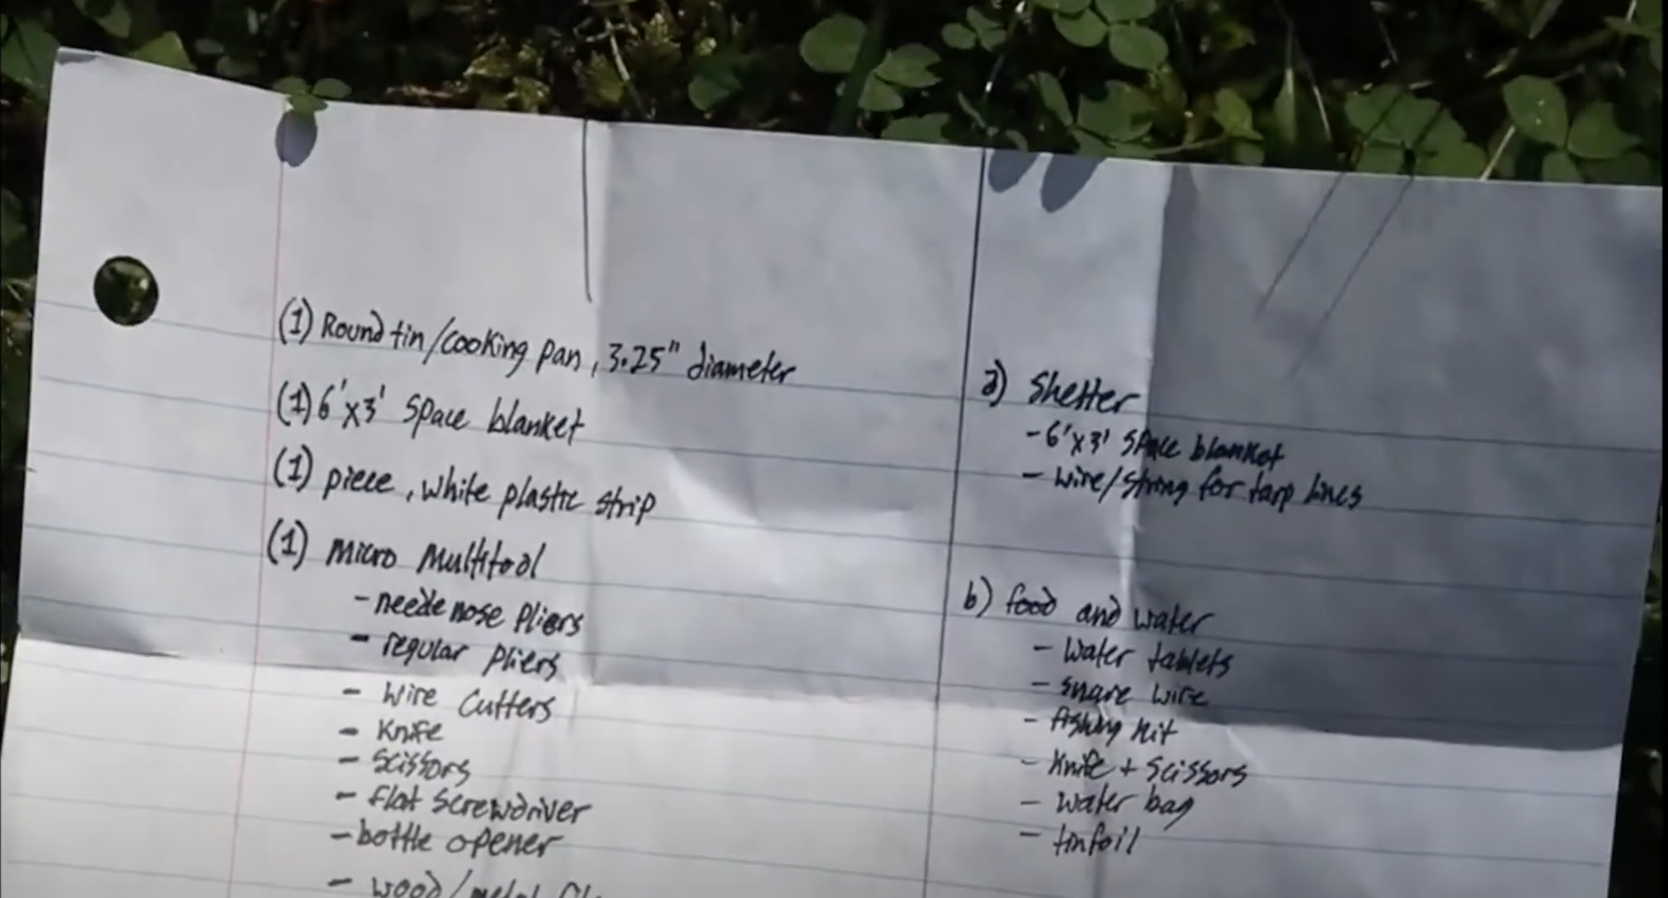 (1) Round tin/cooking pan, 3.25" diameter
(1) 6'x3' space blanket
(1) piece, white plastic strip
(1) micro multitool
- neede nose pliers
- regular pliers
- wire cutters
- Knife
- scissors
- flat screwdriver
- bottle opener
- wood/metal
a) Shelter
- 6'x3' space blanket
- wire/string for tarp lines
b) food and water
- water tablets
- snare wire
- fishing kit
- Knife + scissors
- water bag
- tinfoil